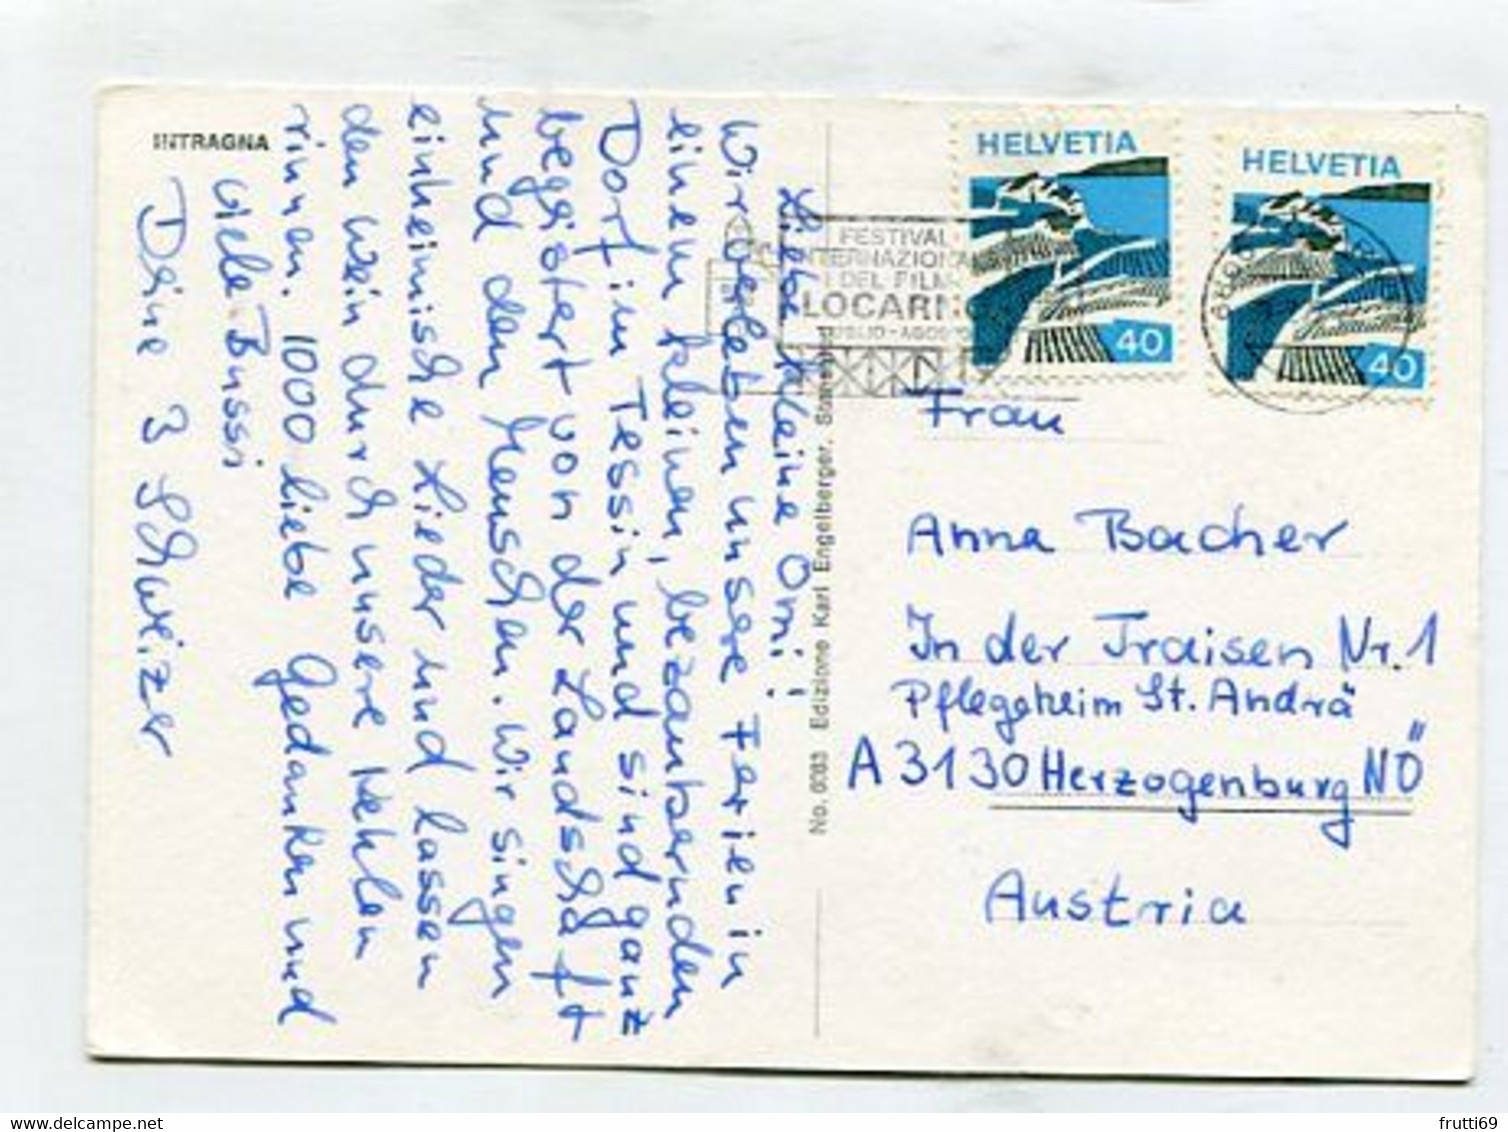 INTRAGNA
Liebe kleine Omi!
Wir verleben unsere Ferien in
einem kleinen, bezaubernden
Dorf im Tessin und sind ganz
begeistert von der Landschaft
und den Menschen. Wir singen
einheimische Lieder und lassen
den Wein durch unsere Kehlen
rinnen. 1000 liebe Gedanken und
viele Bussi
Deine 3 Schweizer
No. 0083 Edizione Karl Engelberger,
FESTIVAL
INTERNAZIONALE
DEL FILM
LOCARNO
LUGLIO - AGOSTO
HELVETIA
40
HELVETIA
40
Frau
Anna Bacher
In der Traisen Nr. 1
Pflegeheim St. Andrä
A 3130 Herzogenburg NÖ
Austria
delcampe.net
frutti69